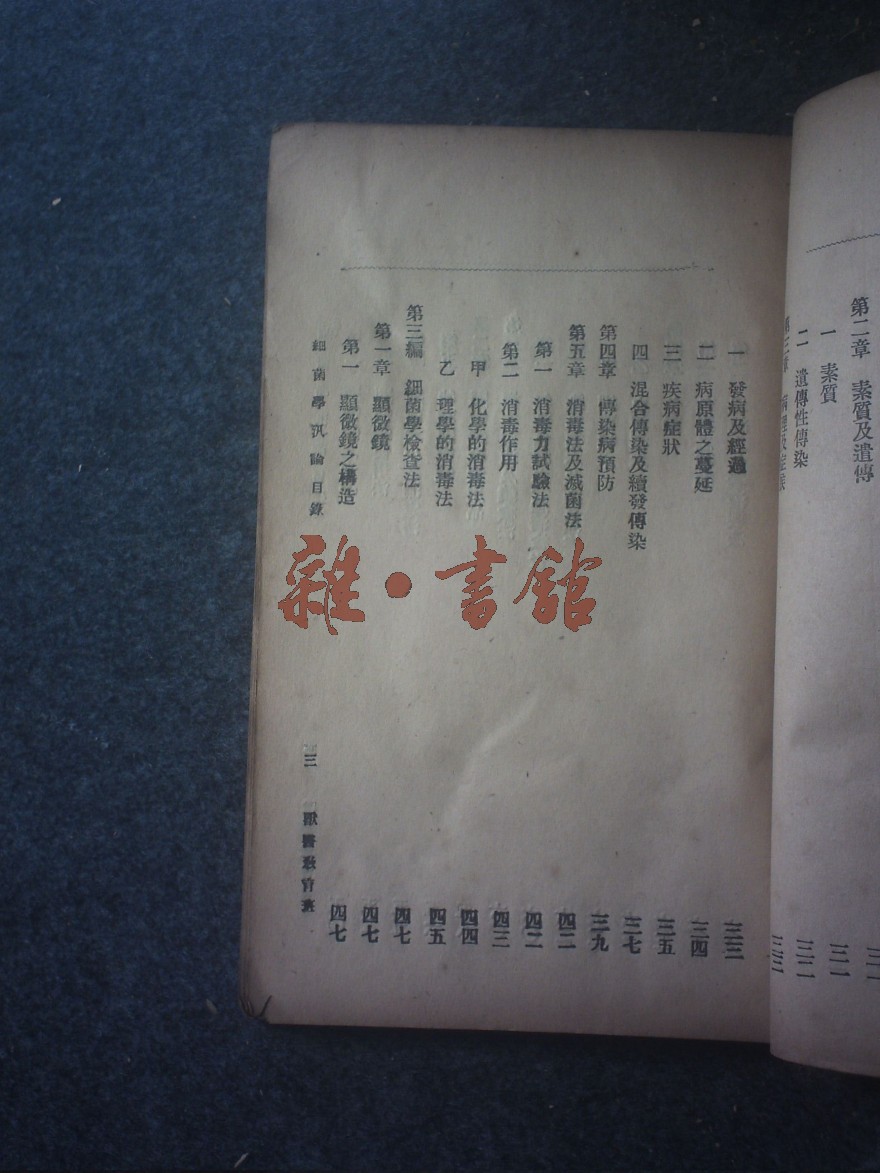 第二章　素質及遺傳　三一
一　素質　三一
二　遺傳性傳染　三二
三三
一　發病及經過　三三
二　病原體之蔓延　三四
三　疾病症狀　三五
四　混合傳染及續發傳染　三七
第四章　傳染病預防　三九
第五章　消毒法及滅菌法　四二
第一　消毒力試驗法　四二
第二　消毒作用　四三
甲　化學的消毒法　四四
乙　理學的消毒法　四五
第三編　細菌學檢查法　四七
第一章　顯微鏡　四七
第一　顯微鏡之構造　四七
細菌學汎論目錄　三　獸醫教育班
雜·書館